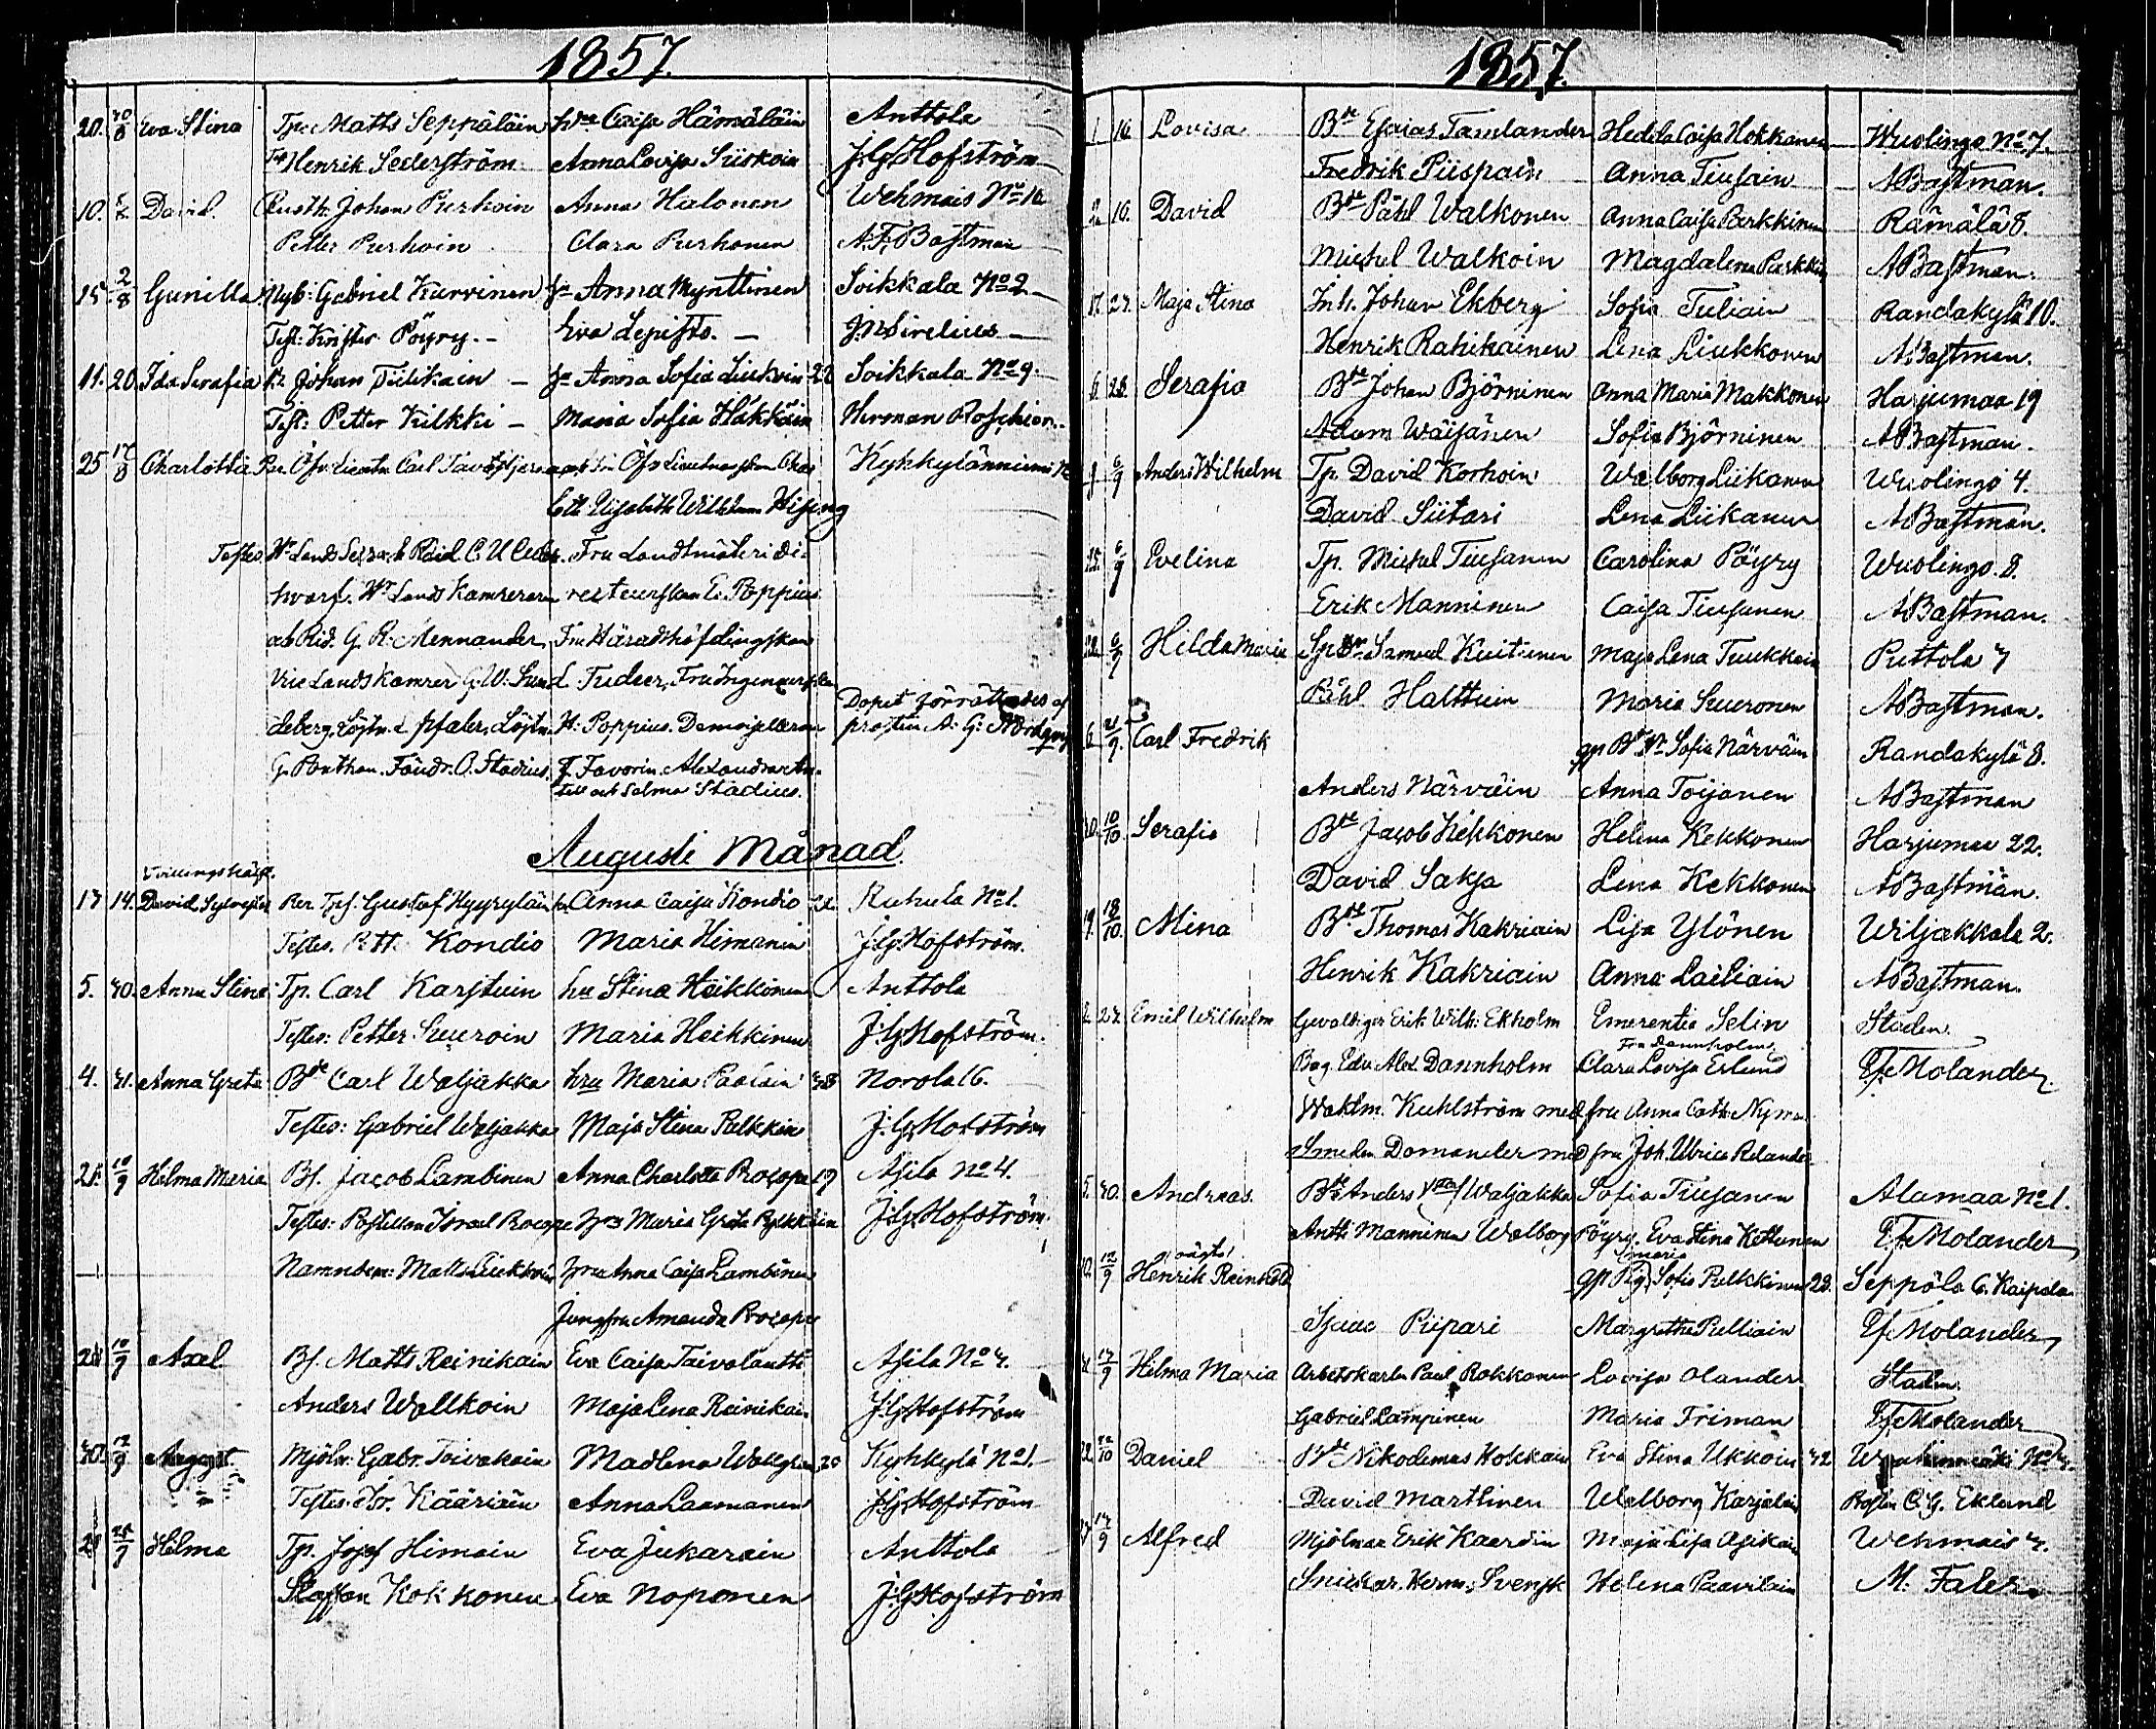 1857.
20. 30/8 Eva Stina Tp: Matts Seppäläin hru Caisa Hämäläin Anttola
Henrik Sederström Anna Lovisa Siiskoin J:G:Hofström
10. David. Johan Purhoin Anna Hialonen Wehmais No 16
Petter Purhoin Clara Purhonen A:F:Bastman
15 2/8 Gunilla Nyb: Gabriel Kurvinen Anna Mynttinen Soikkala No 2
Test: Krister Pöyry. Eva Lepistö. J:N Sirelius
11. 20. Ida Serafia Johan Tiilikain Anna Sofia Liukoin 22 Soikkala No 9.
Test: Petter Kilkki Maria Sofia Häkkäin Herman Roschier.
25 17/8 Charlotta Carl Gust: Kyhkylänniemi
Elisabeth Wilhelmina Hising
Testes. Fru Landtmäteri di-
hvarf. Lands Kamreraren recteurskan E: Poppius
G. R. Mennander, Fru Häradshöfdingskan
Vice Lands Kamrer G:W: Sun L. Tudeer, Fru Ingenieurskan
deberg, Löjtn. Pfaler, Löjtn. H: Poppius. Demoisellerna Dopet förrättades af
prosten A: G: Nordqvist
G. Ponthan. O. Stadius, F. Favorin, Alexandra
och Selma Stadius.
Augusti Månad.
Tvillingshälft.
13 14. David Sylvester Gustaf Hyyryläin Anna Caisa Kondio Ruhula No 1.
Testes. Pett: Kondio Maria Himanin J:G:Hofström.
5. 30. Anna Stina Tp. Carl Karstuin hu Stina Heikkinen Anttola
Testes: Petter Suuroin Maria Heikkinen J:G:Hofström.
4. 31. Anna Greta Bde Carl Waljakka hru Maria Paalain 38 Norola 16.
Testes: Gabriel Waljakka Maja Stina Pelkkin J:G:Hofström
21. 10/9 Helma Maria Bs. Jacob Lambinen Anna Charlotta Procope 19 Asila No 4.
Testes: Postillon Israel Procope Maria Greta Pylkkäin J:G:Hofström.
Namndem: Matts Liukkoin Anna Caisa Lambinen
Jungfru Amanda Procope
28 10/9 Axel Bs. Matts Reinikain Eva Caisa Taivalantti Asila No 3.
Anders Wallkoin Maja Lena Reinikain J:G:Hofström
30. 12/9 August Mjöln: Gabr. Toivakain Madlena Wallgren 20 Kyhkylä No 1.
Testes: Kääriäin Anna Laamanen J:G:Hofström
29 Helma Tp. Josef Himain Eva Jukarain Anttola
Staffan Kokkonen Eva Noponen J:G:Hofström
1857.
1 16. Lovisa Bde Esaias Tamlander Hedda Caisa Hokkanen Wuolingo No 7.
Fredrik Piispain Anna Tiusain A Bastman.
16. David Bde Påhl Walkonen Anna Caisa Parkkinen Rämälä 8.
Michel Walkoin Magdalena Parkkin A Bastman.
17. 27. Maja Stina Inh. Johan Ekberg Sofia Tuliain Randakylä 10.
Henrik Rahikainen Lena Liukkonen A Bastman.
6. 28. Serafia Bde Johan Björninen Anna Maria Makkonen Harjumaa 19
Adam Wäisänen Sofia Björninen A Bastman.
6/9 Anders Wilhelm Tp. David Korhoin Walborg Liikanen Wuolingo 4.
David Siitari Lena Liikanen A Bastman.
25. 6/9 Evelina Tp. Michel Tiusanen Carolina Pöyry Wuolingo 8.
Erik Manninen Caisa Tiusanen A Bastman.
22. 6/9 Hilda Maria Samuel Kuitunen Maja Lena Tuukkain Puttola 7
Påhl Halttuin Maria Suuronen A Bastman.
6. 21/9. Carl Fredrik Sofia Närväin Randakylä 8.
Anders Närväin Anna Toijonen A Bastman
30. 10/10. Serafia Bde Jacob Kekkonen Helena Kekkonen Harjumaa 22.
David Saksa Lena Kekkonen A Bastman.
19. 18/10. Mina Bde Thomas Kakriain Lisa Ylönen Wiljakkala 2.
Henrik Kakriain Anna Laitiain A Bastman.
2. 27. Emil Wilhelm Gevaldiger Erik Wilh: Ekholm Emerentia Selin Staden.
Fru Dannholm
Bag. Edv. Alex. Dannholm Clara Lovisa Erlund E.f.Molander.
Waktm. Kuhlström med fru Anna Cath: Nyman
Smeden Domander med fru Joh. Ulrica Relander
5. 30. Andreas. Bde Anders Waljakka Sofia Tiusanen Alamaa No 1.
Antti Manninen Walborg Pöyry, Eva Stina Kettunen E.f.Molander
oägta
Maria
12. 12/9 Henrik Reinhold Sofia Pulkkinen 28. Seppölä C. Kaipola
Isaac Piipari Margretha Pulliain E.f.Molander
31. 13/9 Helma Maria Arbetskarlen Paul Rokkonen Lovisa Olander Staden.
Gabriel Lampinen Maria Friman E.f.Molander
22. Daniel Bde Nikodemus Hokkain Eva Stina Ukkoin 32
David Marttinen Walborg Karjalain Prosten C. G. Eklund
Alfred Mjölnar Erik Kaardin Maja Lisa Asikain Wehmais 3.
Snickar. Herm: Svensk Helena Paavilain M. Faler